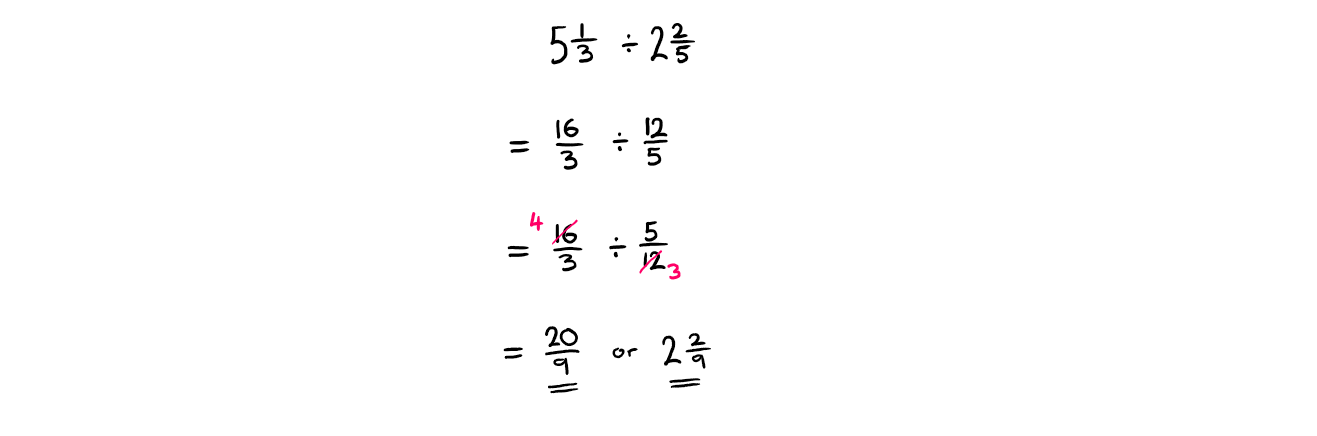 5 1/3 ÷ 2 2/5
= 16/3 ÷ 12/5
= 4 16/3 ÷ 5/12 3
= 20/9 or 2 2/9